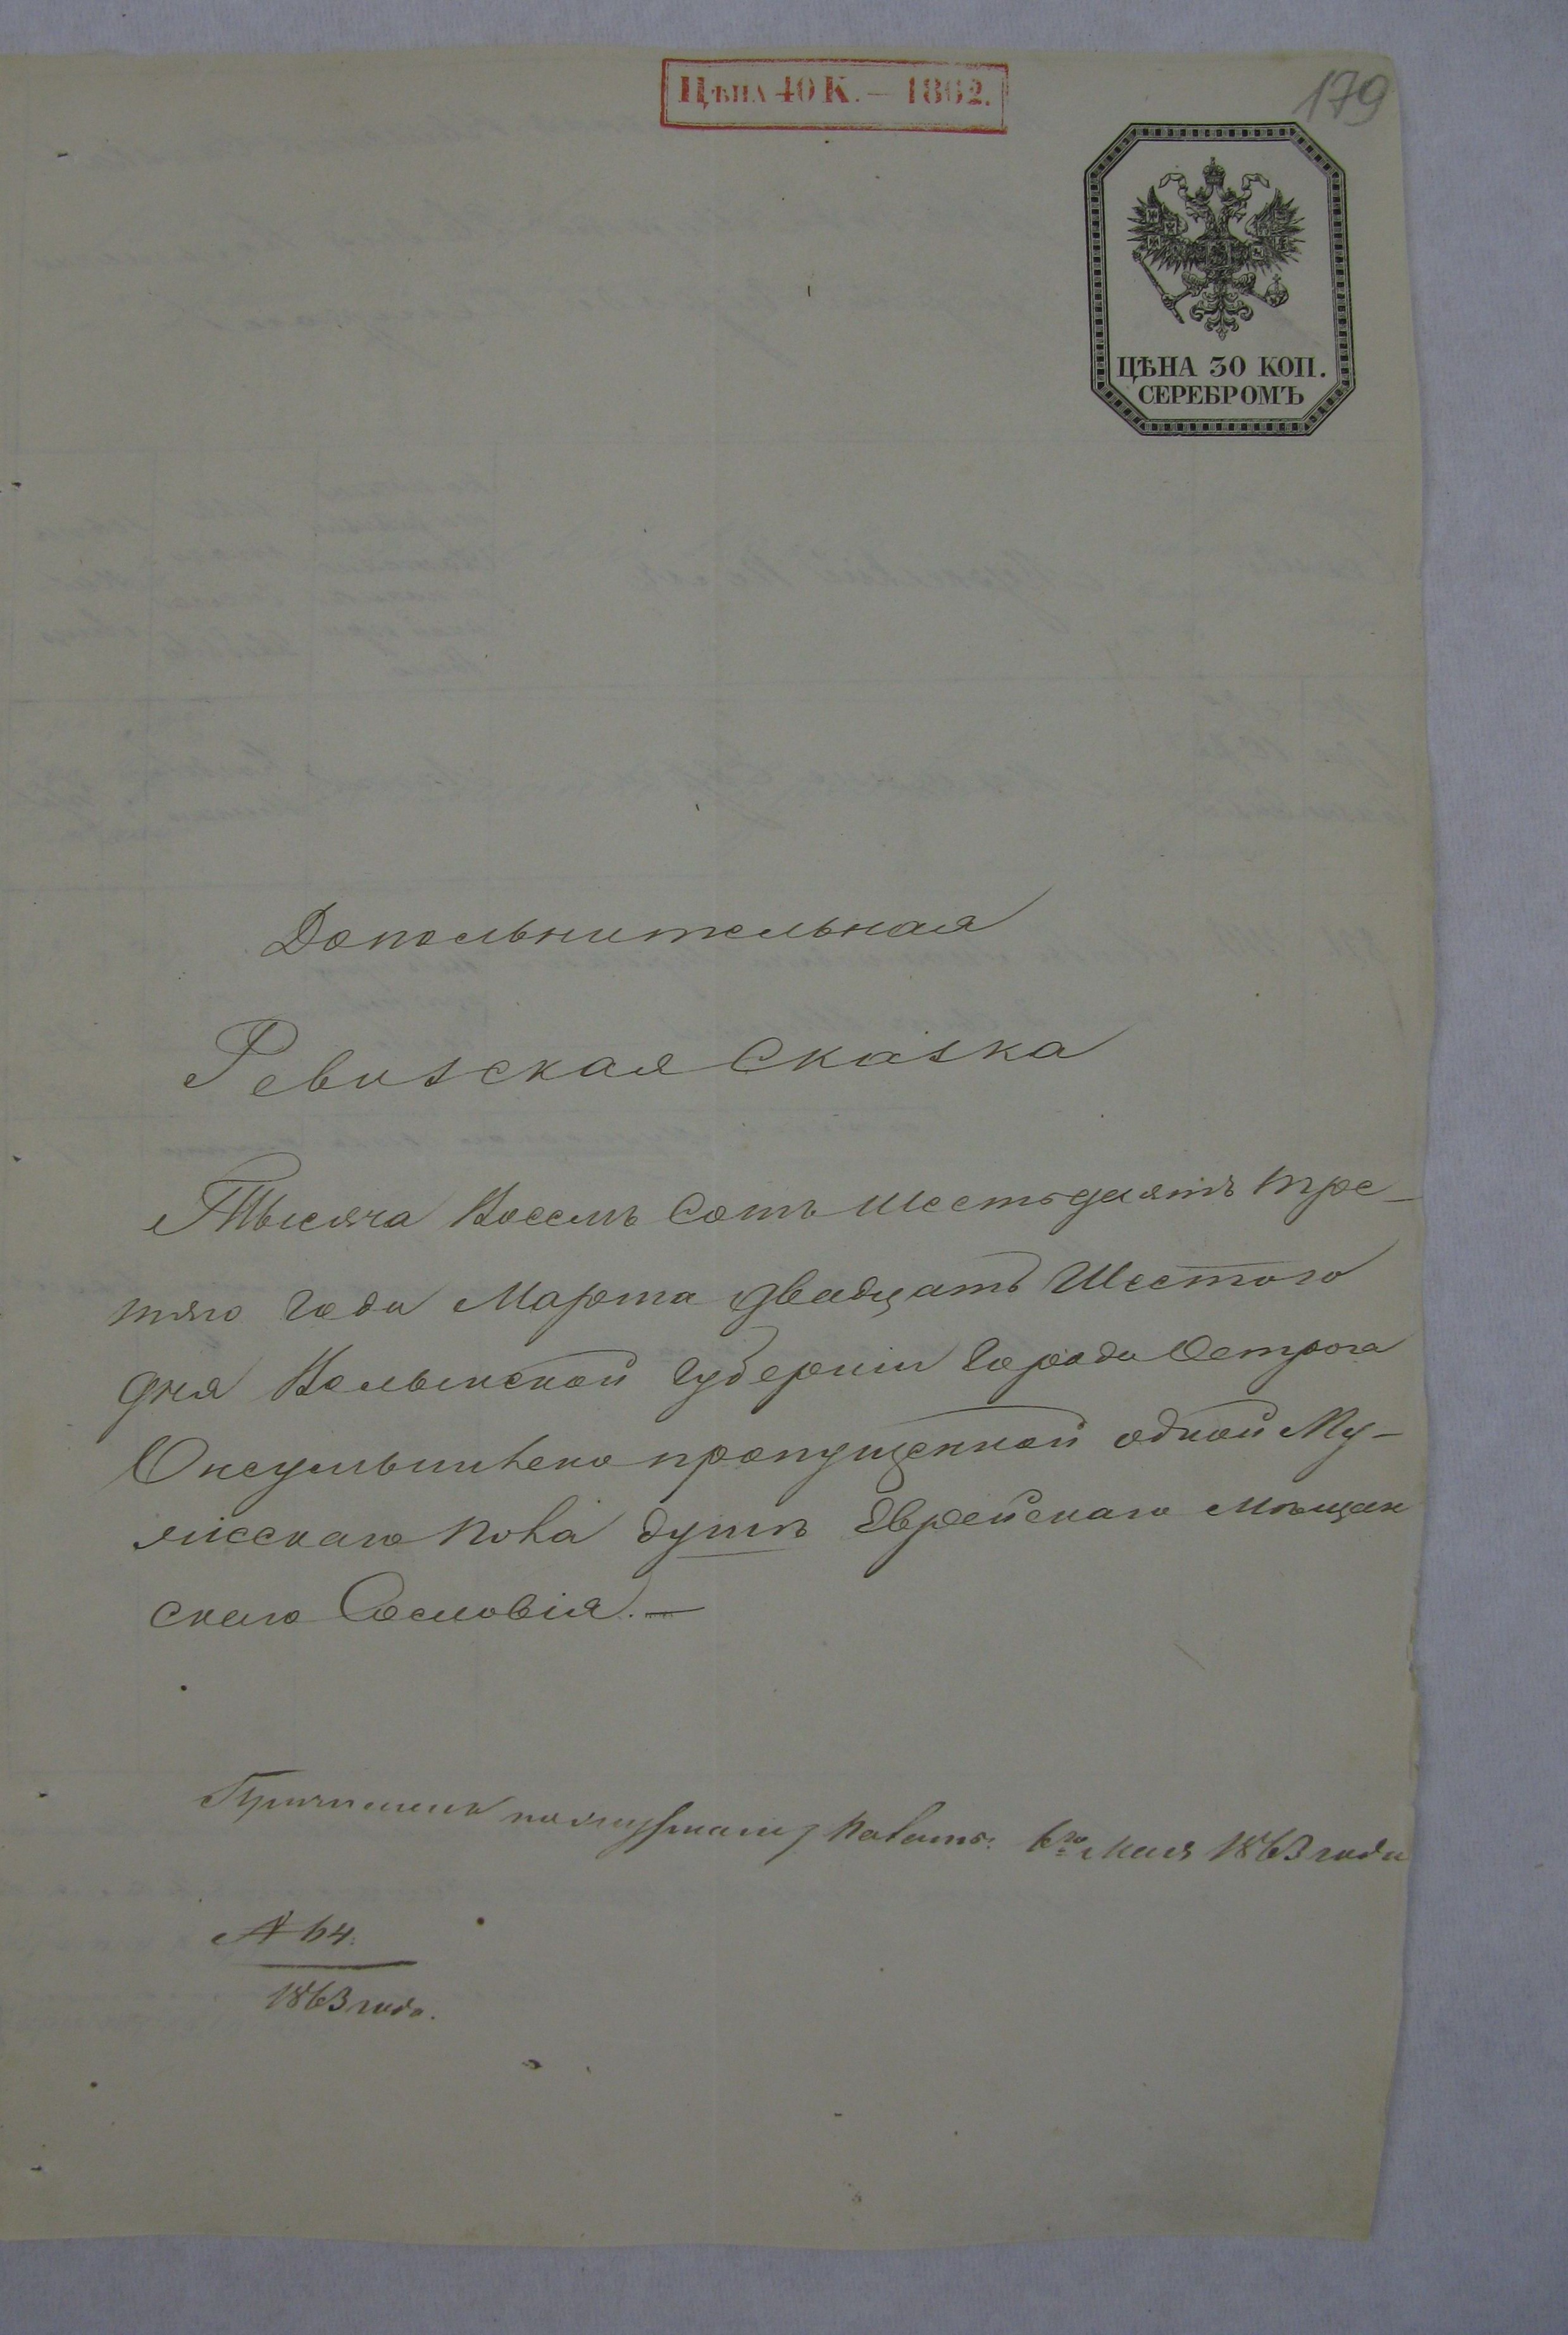 Цѣна 40 К. — 1862.
179
ЦѢНА 30 КОП.
СЕРЕБРОМЪ
Допольнительная
Ревизская Сказка
Тысяча Восемь Сотъ Шестьдесятъ тре-
тяго Года Марта двадцать Шестого
дня Волынской Губерніи Города Острога
пропущенной одной Му-
Пола душѣ Еврейскаго мѣщан
скаго Сословія. —
6го Мая 1863 года
№ 64.
1863 года.